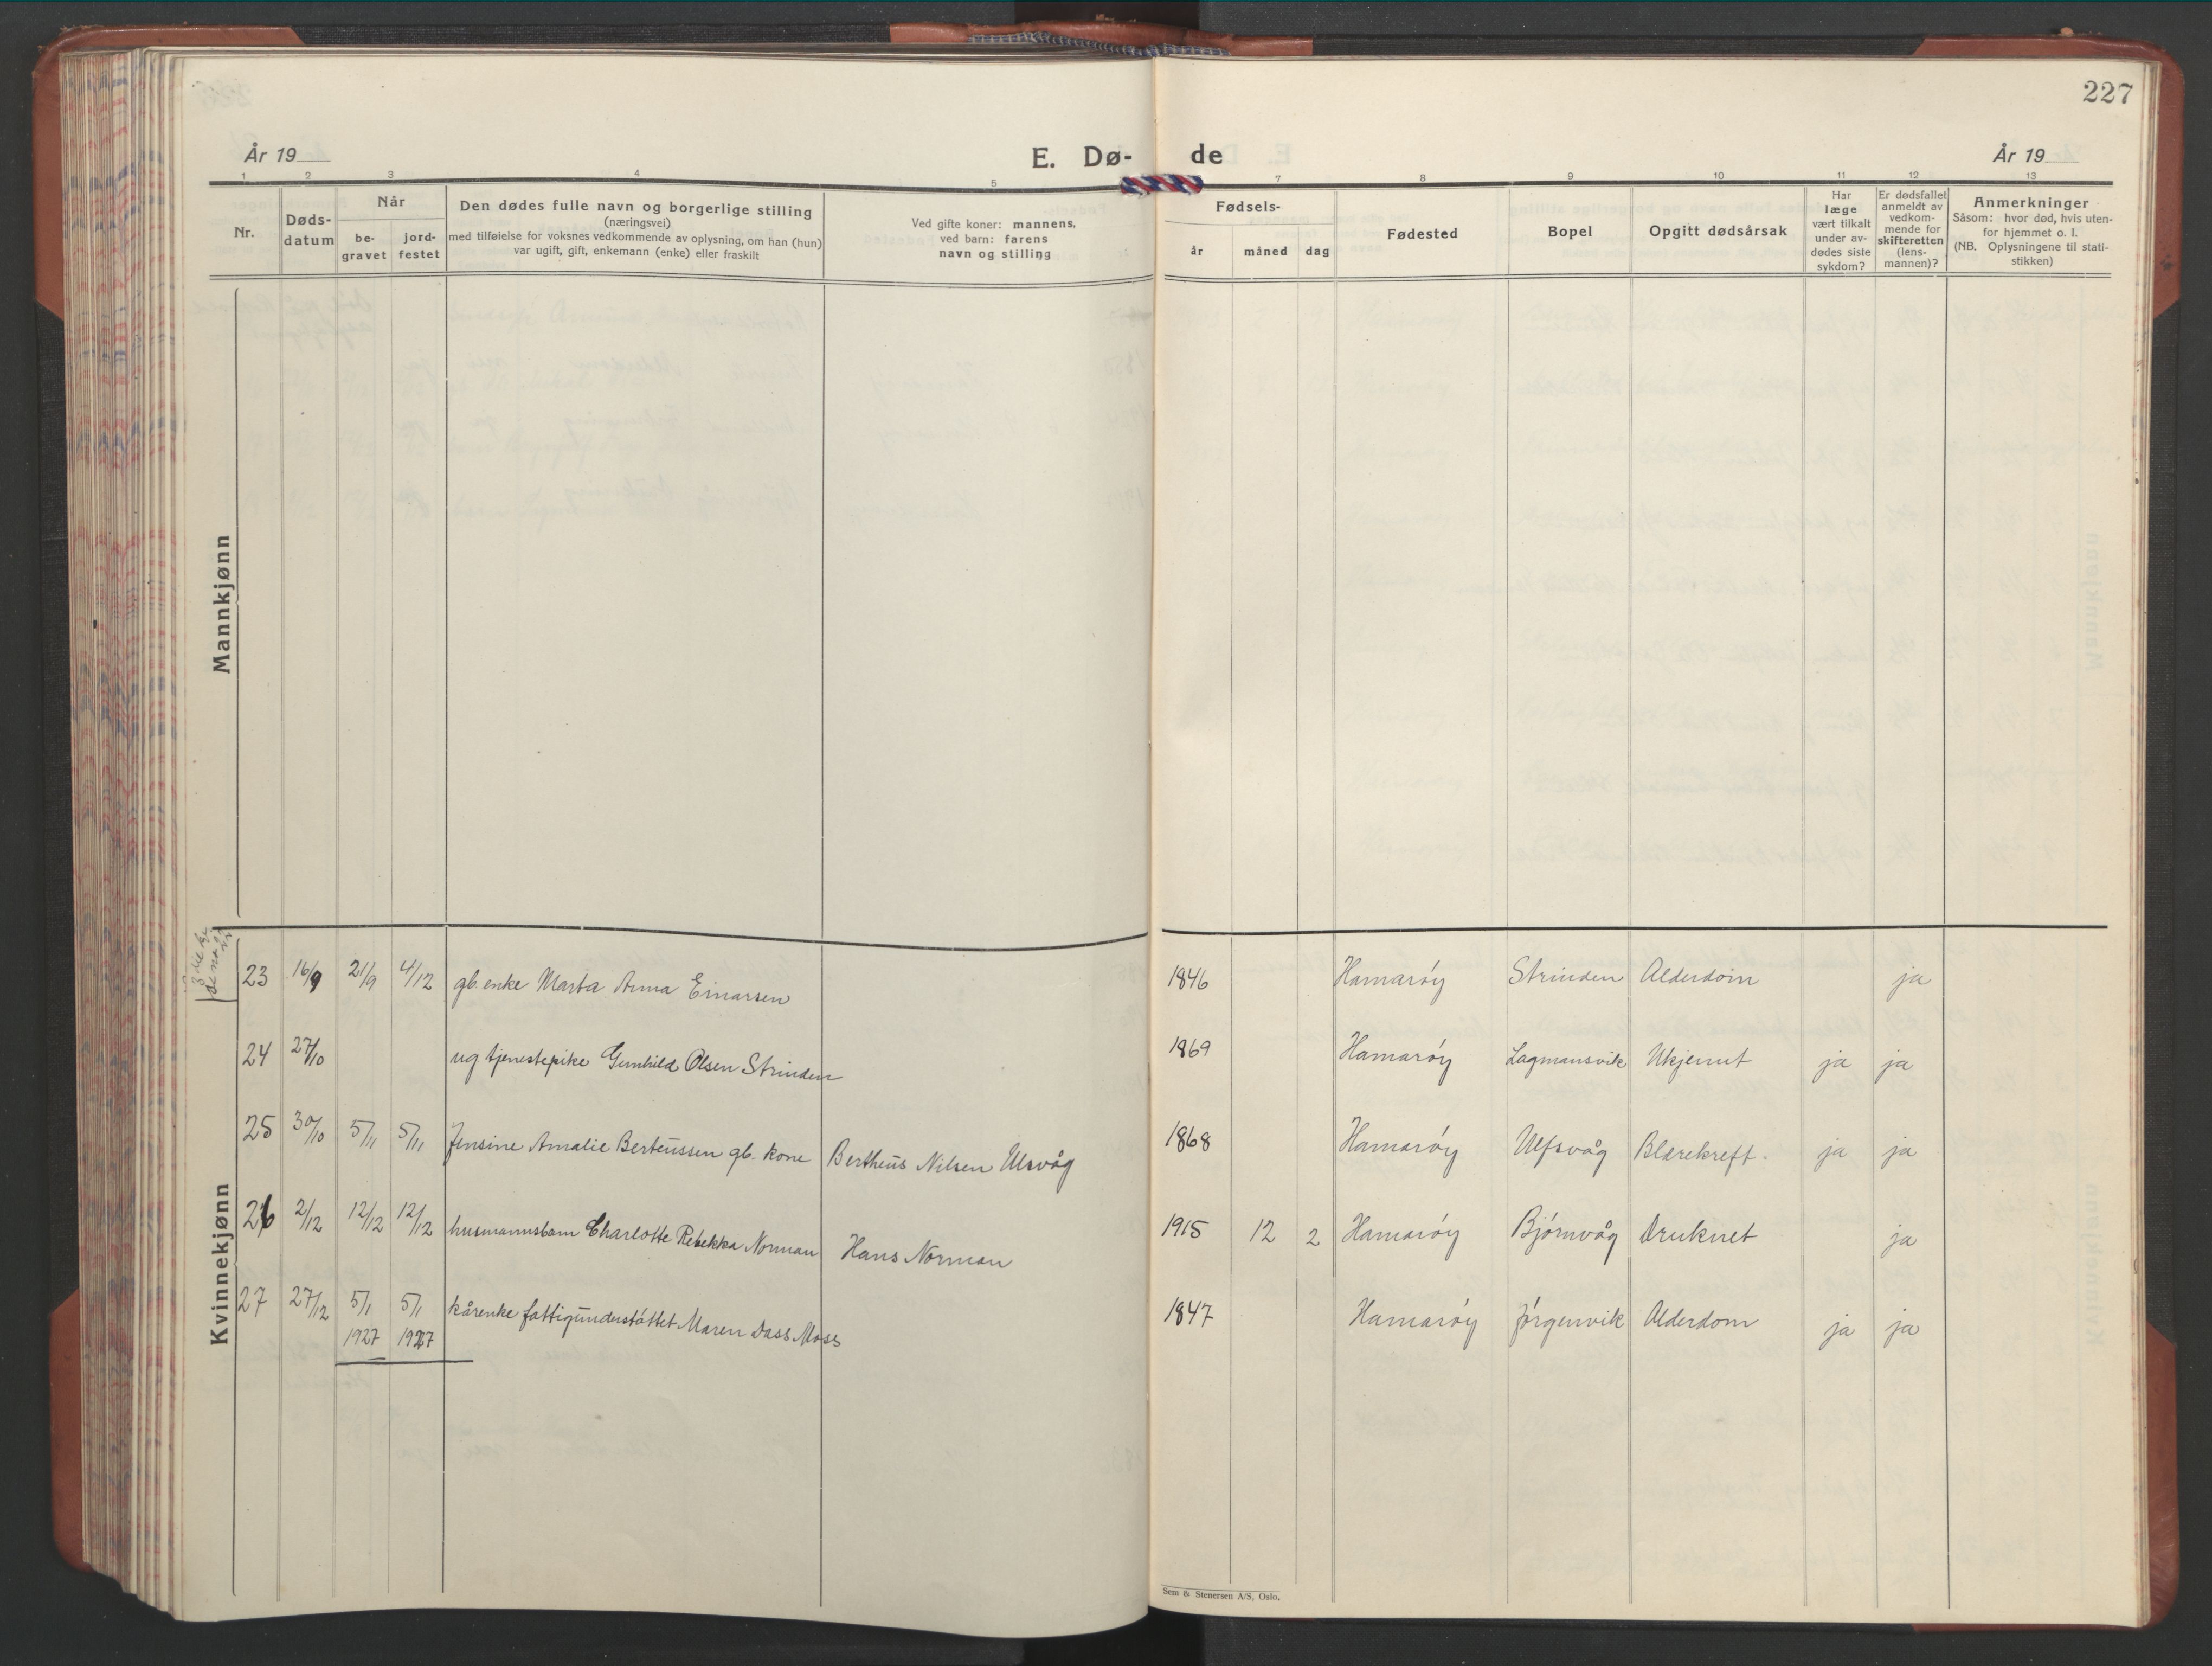 227
År 19
E. Dø-
de
År 19
1 2 3 4 5 7 8 9 10 11 12 13
Nr.
Døds-
datum
Når
be-
gravet
jord-
festet
Den dødes fulle navn og borgerlige stilling
(næringsvei)
med tilføielse for voksnes vedkommende av oplysning, om han (hun)
var ugift, gift, enkemann (enke) eller fraskilt
Ved gifte koner: mannens,
ved barn: farens
navn og stilling
Fødsels-
år måned dag
Fødested
Bopel
Opgitt dødsårsak
Har
læge
vært tilkalt
under av-
dødes siste
sykdom?
Er dødsfallet
anmeldt av
vedkom-
mende for
skifteretten
(lens-
mannen)?
Anmerkninger
Såsom: hvor død, hvis uten-
for hjemmet o. l.
(NB. Oplysningene til stati-
stikken)
Mannkjønn
Kvinnekjønn
23 16/9 21/9 4/12 gb. enke Marta Anna Einarsen 1846 Hamarøy Strinden Alderdom ja
24 27/10 ug tjenestepike Gunhild Olsen Strinden 1869 Hamarøy Lagmansvik Ukjennt ja ja
25 30/10 5/11 5/11 Jensine Amalie Berteussen gb. kone Bertheus Nilsen Ulsvåg 1868 Hamarøy Ulfsvåg Blærekreft. ja ja
26 2/12 12/12 12/12 husmannsbarn Charlotte Rebekka Norman Hans Norman 1915 12 2 Hamarøy Bjørnvåg Druknet ja
27 27/12 5/1 5/1 kårenke fattigunderstøttet Maren Dass Moss 1847 Hamarøy Jørgenvik Alderdom ja ja
1927 1927
Sem & Stenersen A/S, Oslo.